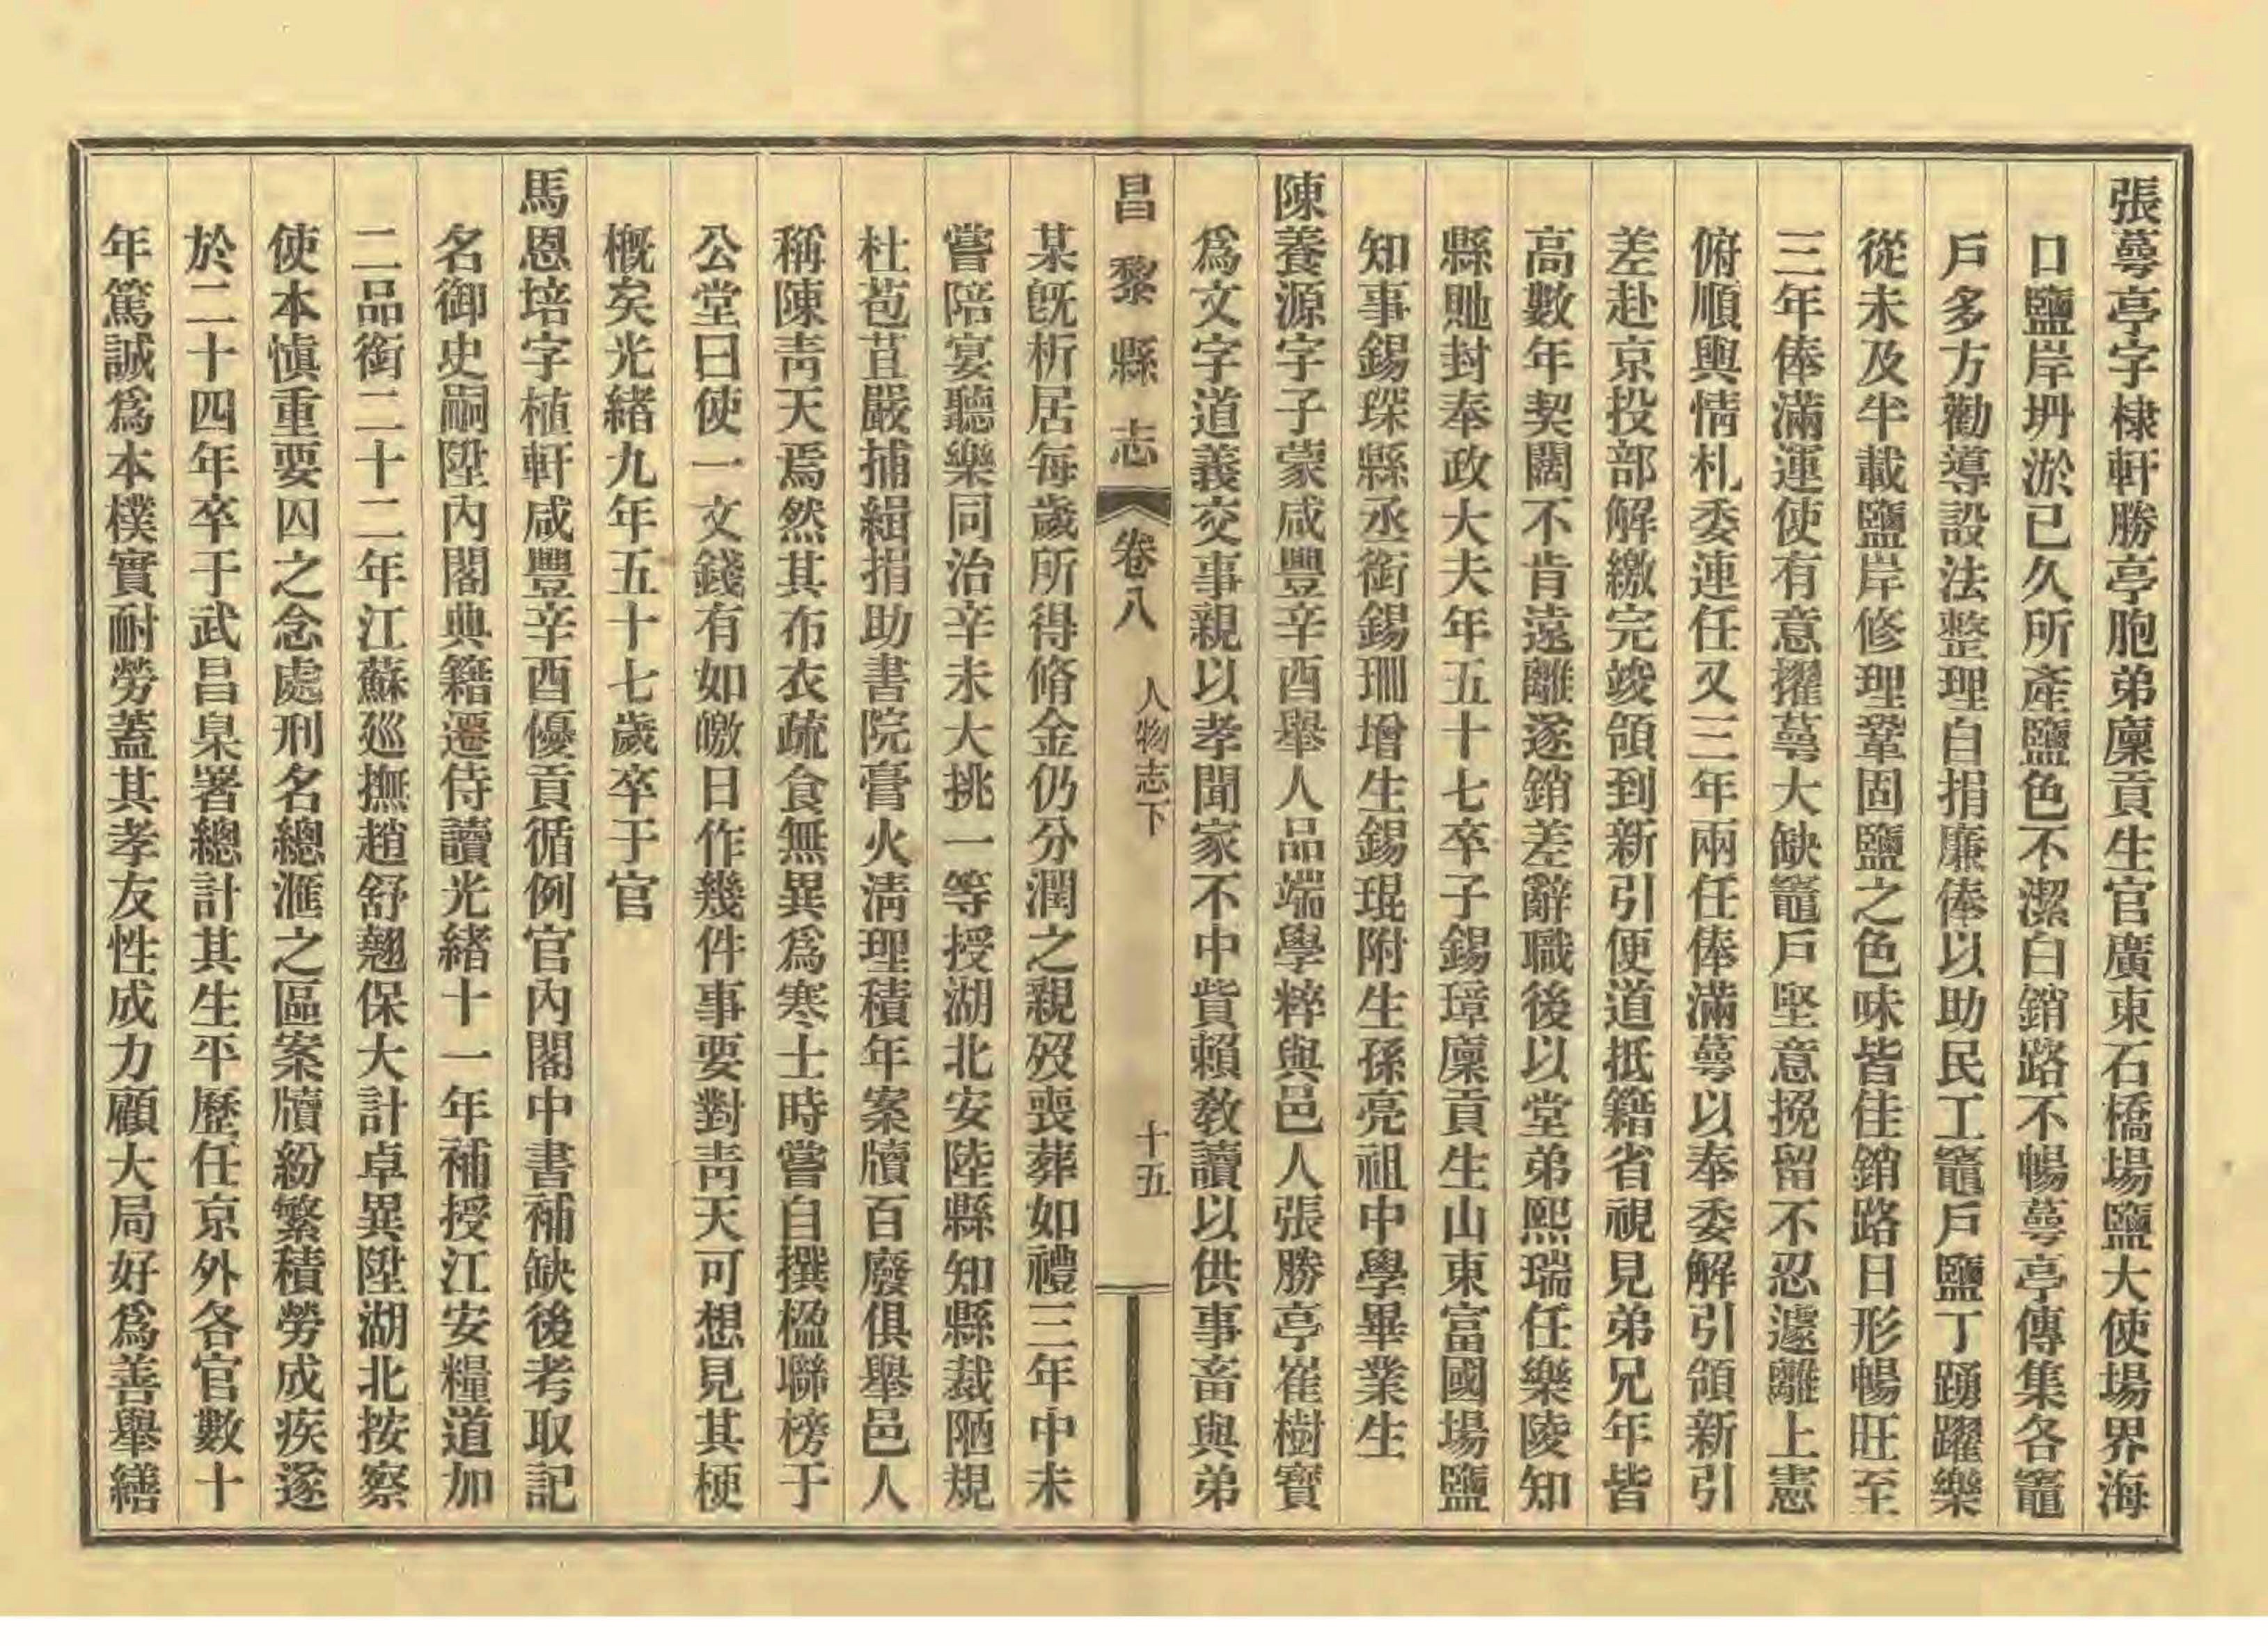 張蕚亭字棣軒勝亭胞弟廩貢生官廣東石橋場鹽大使場界海
口鹽岸坍淤已久所產鹽色不潔白銷路不暢蕚亭傳集各竈
戶多方勸導設法整理自捐廉俸以助民工竈戶鹽丁踴躍樂
從未及半載鹽岸修理鞏固鹽之色味皆佳銷路日形暢旺至
三年俸滿運使有意擢蕚大缺竈戶堅意挽留不忍遽離上憲
俯順輿情札委連任又三年兩任俸滿蕚以奉委解引領新引
差赴京投部解繳完竣領到新引便道抵籍省視見弟兄年皆
高數年契闊不肯遠離遂銷差辭職後以堂弟熙瑞任樂陵知
縣貤封奉政大夫年五十七卒子錫璋廩貢生山東富國場鹽
知事錫琛縣丞銜錫珊增生錫琨附生孫亮祖中學畢業生
陳養源字子蒙咸豐辛酉舉人品端學粹與邑人張勝亭崔樹寶
爲文字道義交事親以孝聞家不中貲賴教讀以供事畜與弟
昌黎縣志 卷八 人物志下 十五
某旣析居每歲所得脩金仍分潤之親歿喪葬如禮三年中未
嘗陪宴聽樂同治辛未大挑一等授湖北安陸縣知縣裁陋規
杜苞苴嚴捕緝捐助書院膏火淸理積年案牘百廢俱舉邑人
稱陳靑天焉然其布衣疏食無異爲寒士時嘗自撰楹聯榜于
公堂曰使一文錢有如皦日作幾件事要對靑天可想見其梗
概矣光緒九年五十七歲卒于官
馬恩培字植軒咸豐辛酉優貢循例官內閣中書補缺後考取記
名御史嗣陞內閣典籍遷侍讀光緒十一年補授江安糧道加
二品銜二十二年江蘇巡撫趙舒翹保大計卓異陞湖北按察
使本愼重要囚之念處刑名總滙之區案牘紛繁積勞成疾遂
於二十四年卒于武昌臬署總計其生平歷任京外各官數十
年篤誠爲本樸實耐勞蓋其孝友性成力顧大局好爲善舉繕